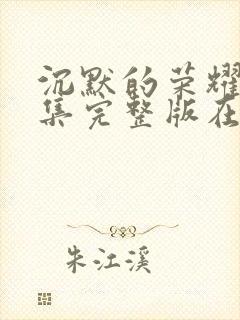 沉默的荣耀
集完整版在
朱江溪